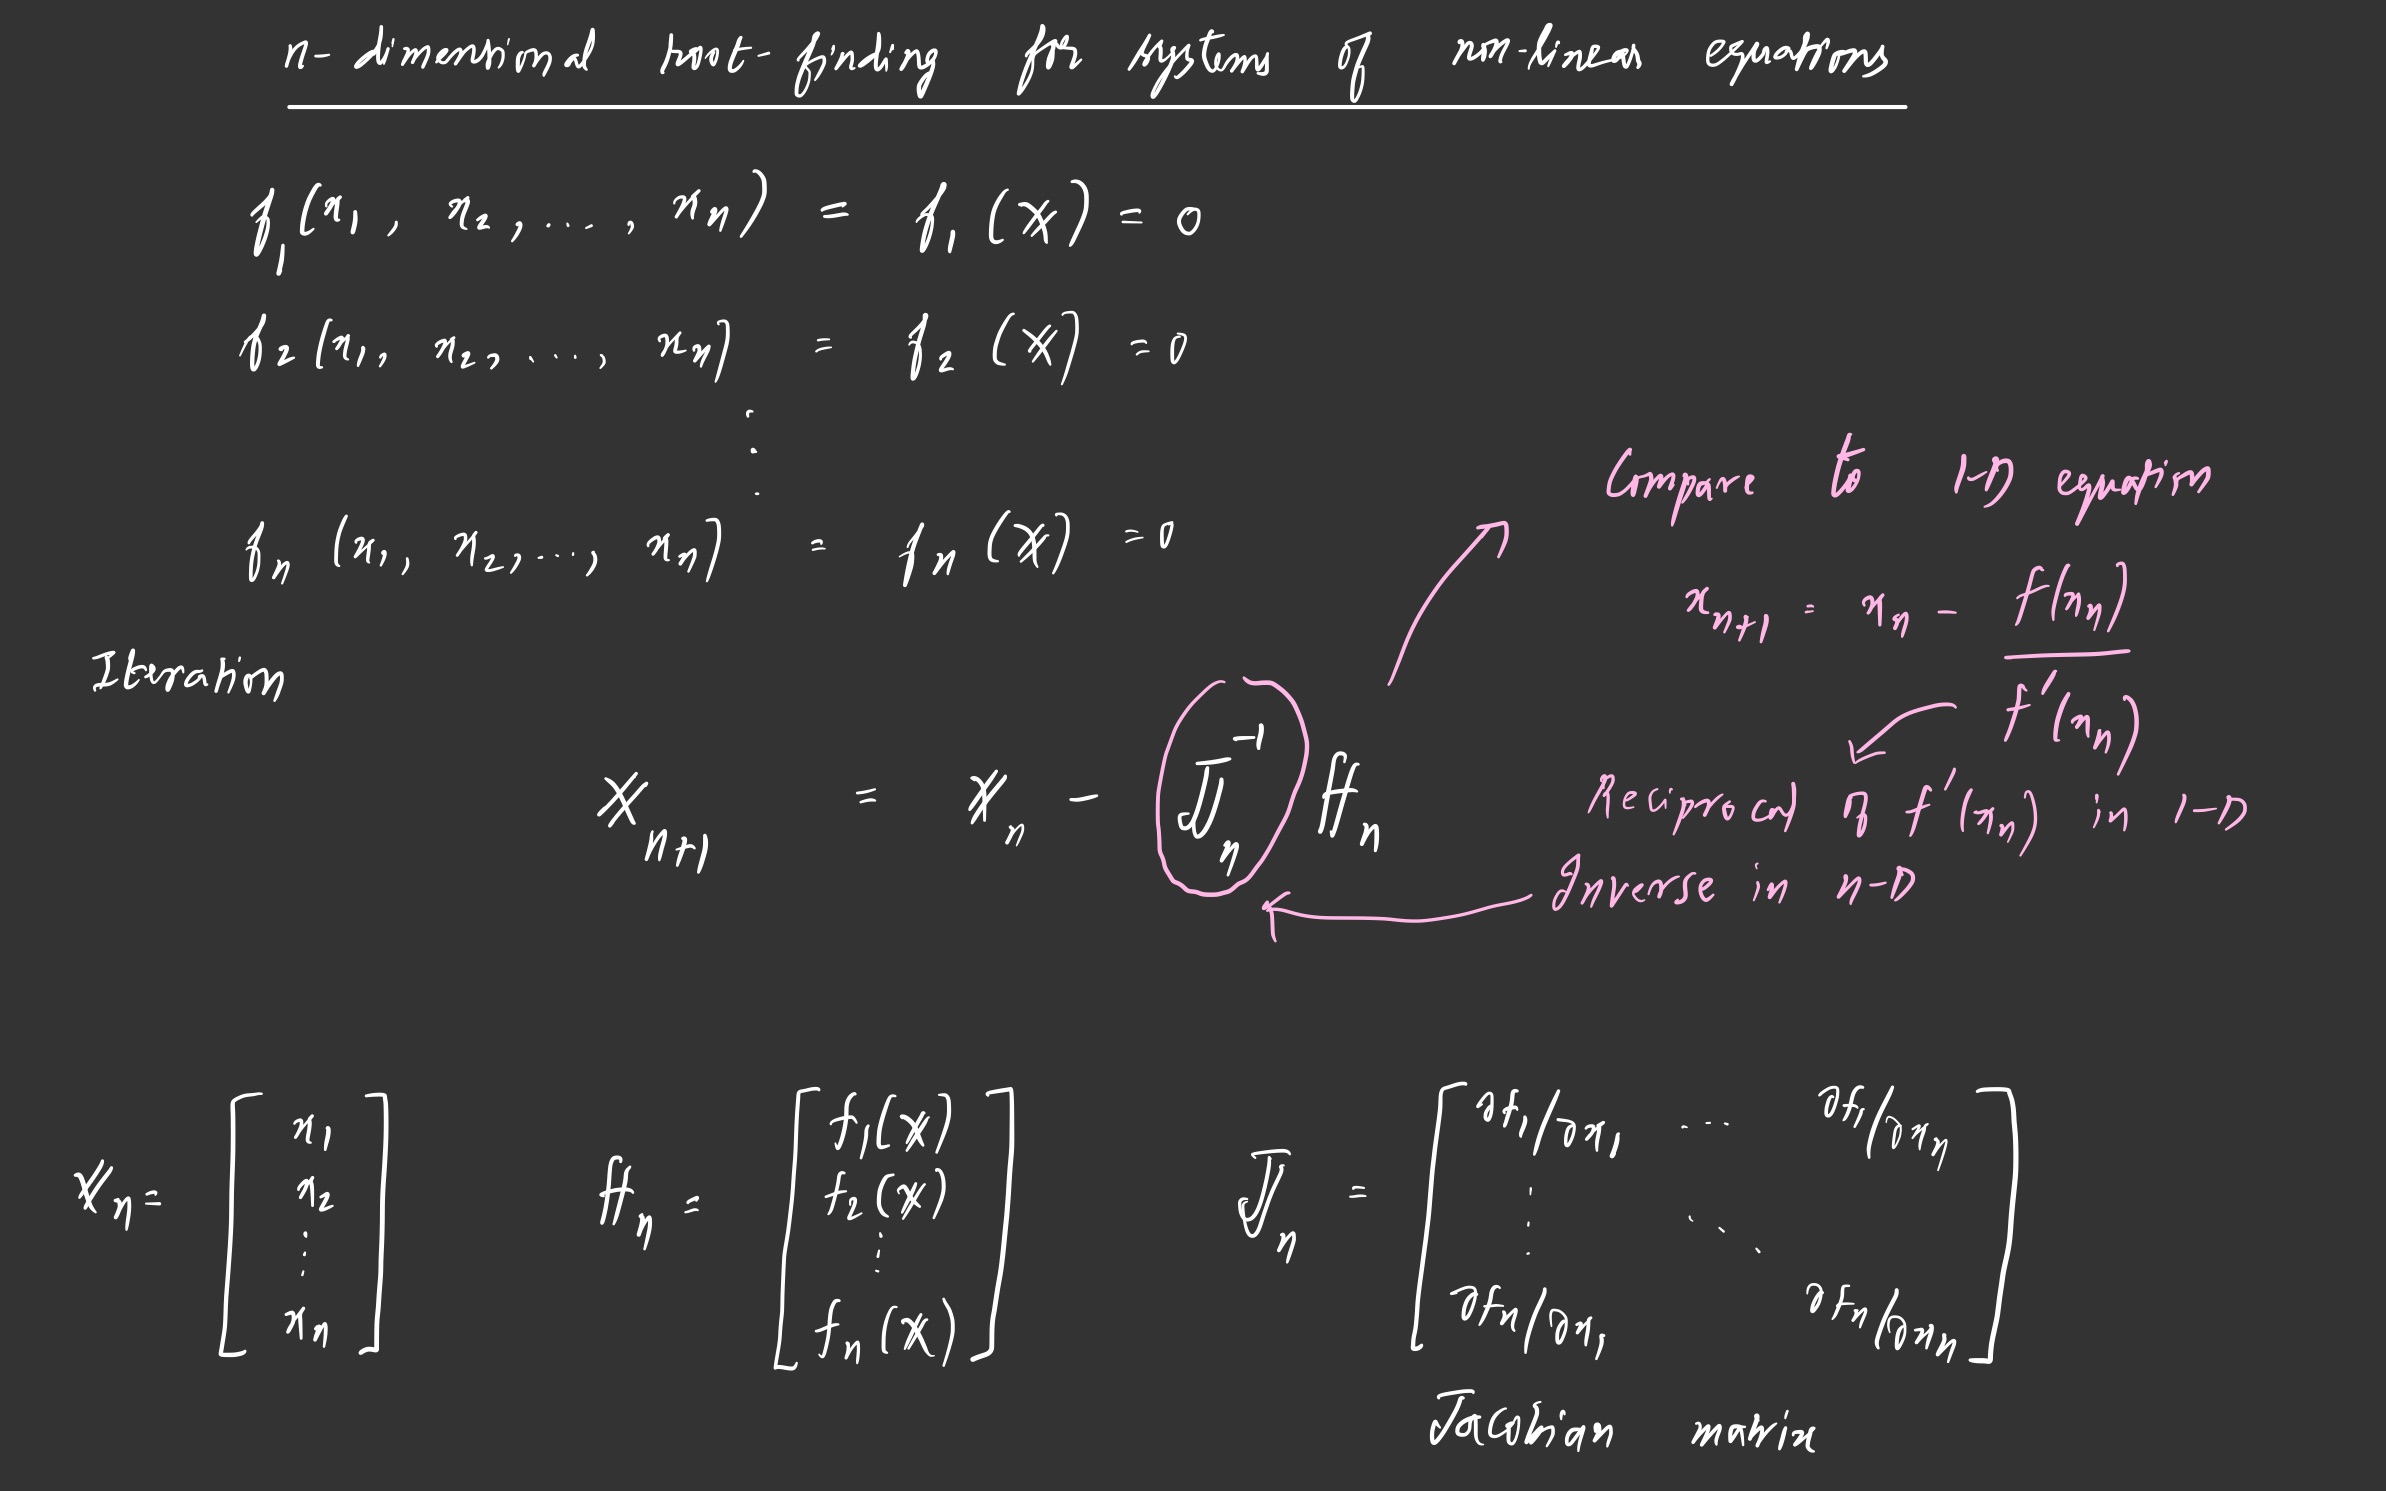 n-dimensional root-finding for systems of non-linear equations
f₁(x₁, x₂, ..., xₙ) = f₁(𝕏) = 0
f₂(x₁, x₂, ..., xₙ) = f₂(𝕏) = 0
⋮
fₙ(x₁, x₂, ..., xₙ) = fₙ(𝕏) = 0
Compare to 1-D equation
xₙ₊₁ = xₙ - f(xₙ) / f'(xₙ)
Iteration
𝕏ₙ₊₁ = 𝕏ₙ - 𝕁ₙ⁻¹ 𝕗ₙ
Reciprocal of f'(xₙ) in 1-D
Inverse in n-D
𝕏ₙ = [x₁ x₂ ⋮ xₙ]
𝕗ₙ = [f₁(𝕏) f₂(𝕏) ⋮ fₙ(𝕏)]
𝕁ₙ = [∂f₁/∂x₁ ... ∂f₁/∂xₙ ⋮ ⋱ ∂fₙ/∂x₁ ∂fₙ/∂xₙ]
Jacobian matrix